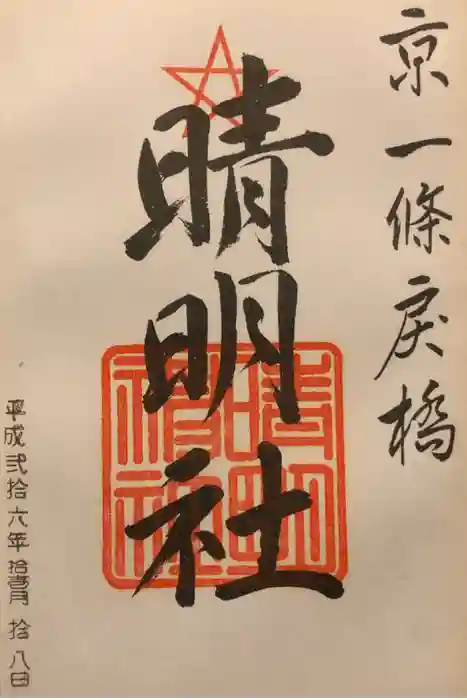 京一條戻橋
晴明社
晴明神社
平成弐拾六年拾壱月拾八日